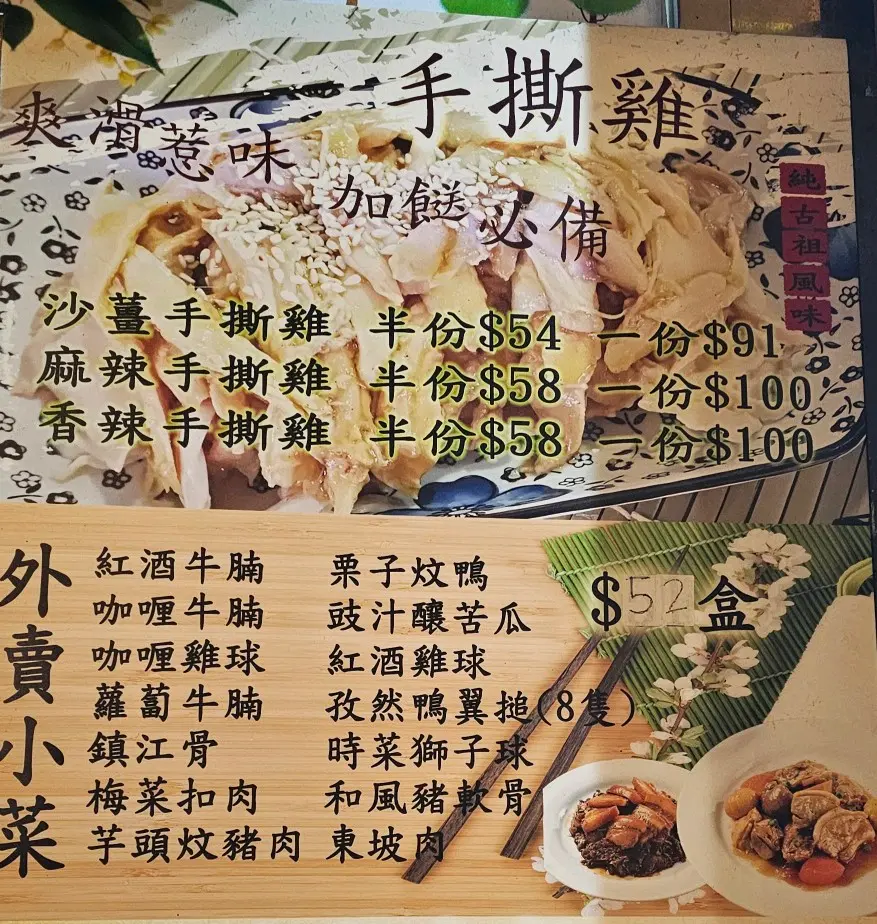 手撕雞
爽滑惹味
加餸必備
純古祖風味
沙薑手撕雞 半份$54 一份$91
麻辣手撕雞 半份$58 一份$100
香辣手撕雞 半份$58 一份$100
外賣小菜
$52盒
紅酒牛腩 栗子炆鴨
咖喱牛腩 豉汁釀苦瓜
咖喱雞球 紅酒雞球
蘿蔔牛腩 孜然鴨翼搥(8隻)
鎮江骨 時菜獅子球
梅菜扣肉 和風豬軟骨
芋頭炆豬肉 東坡肉